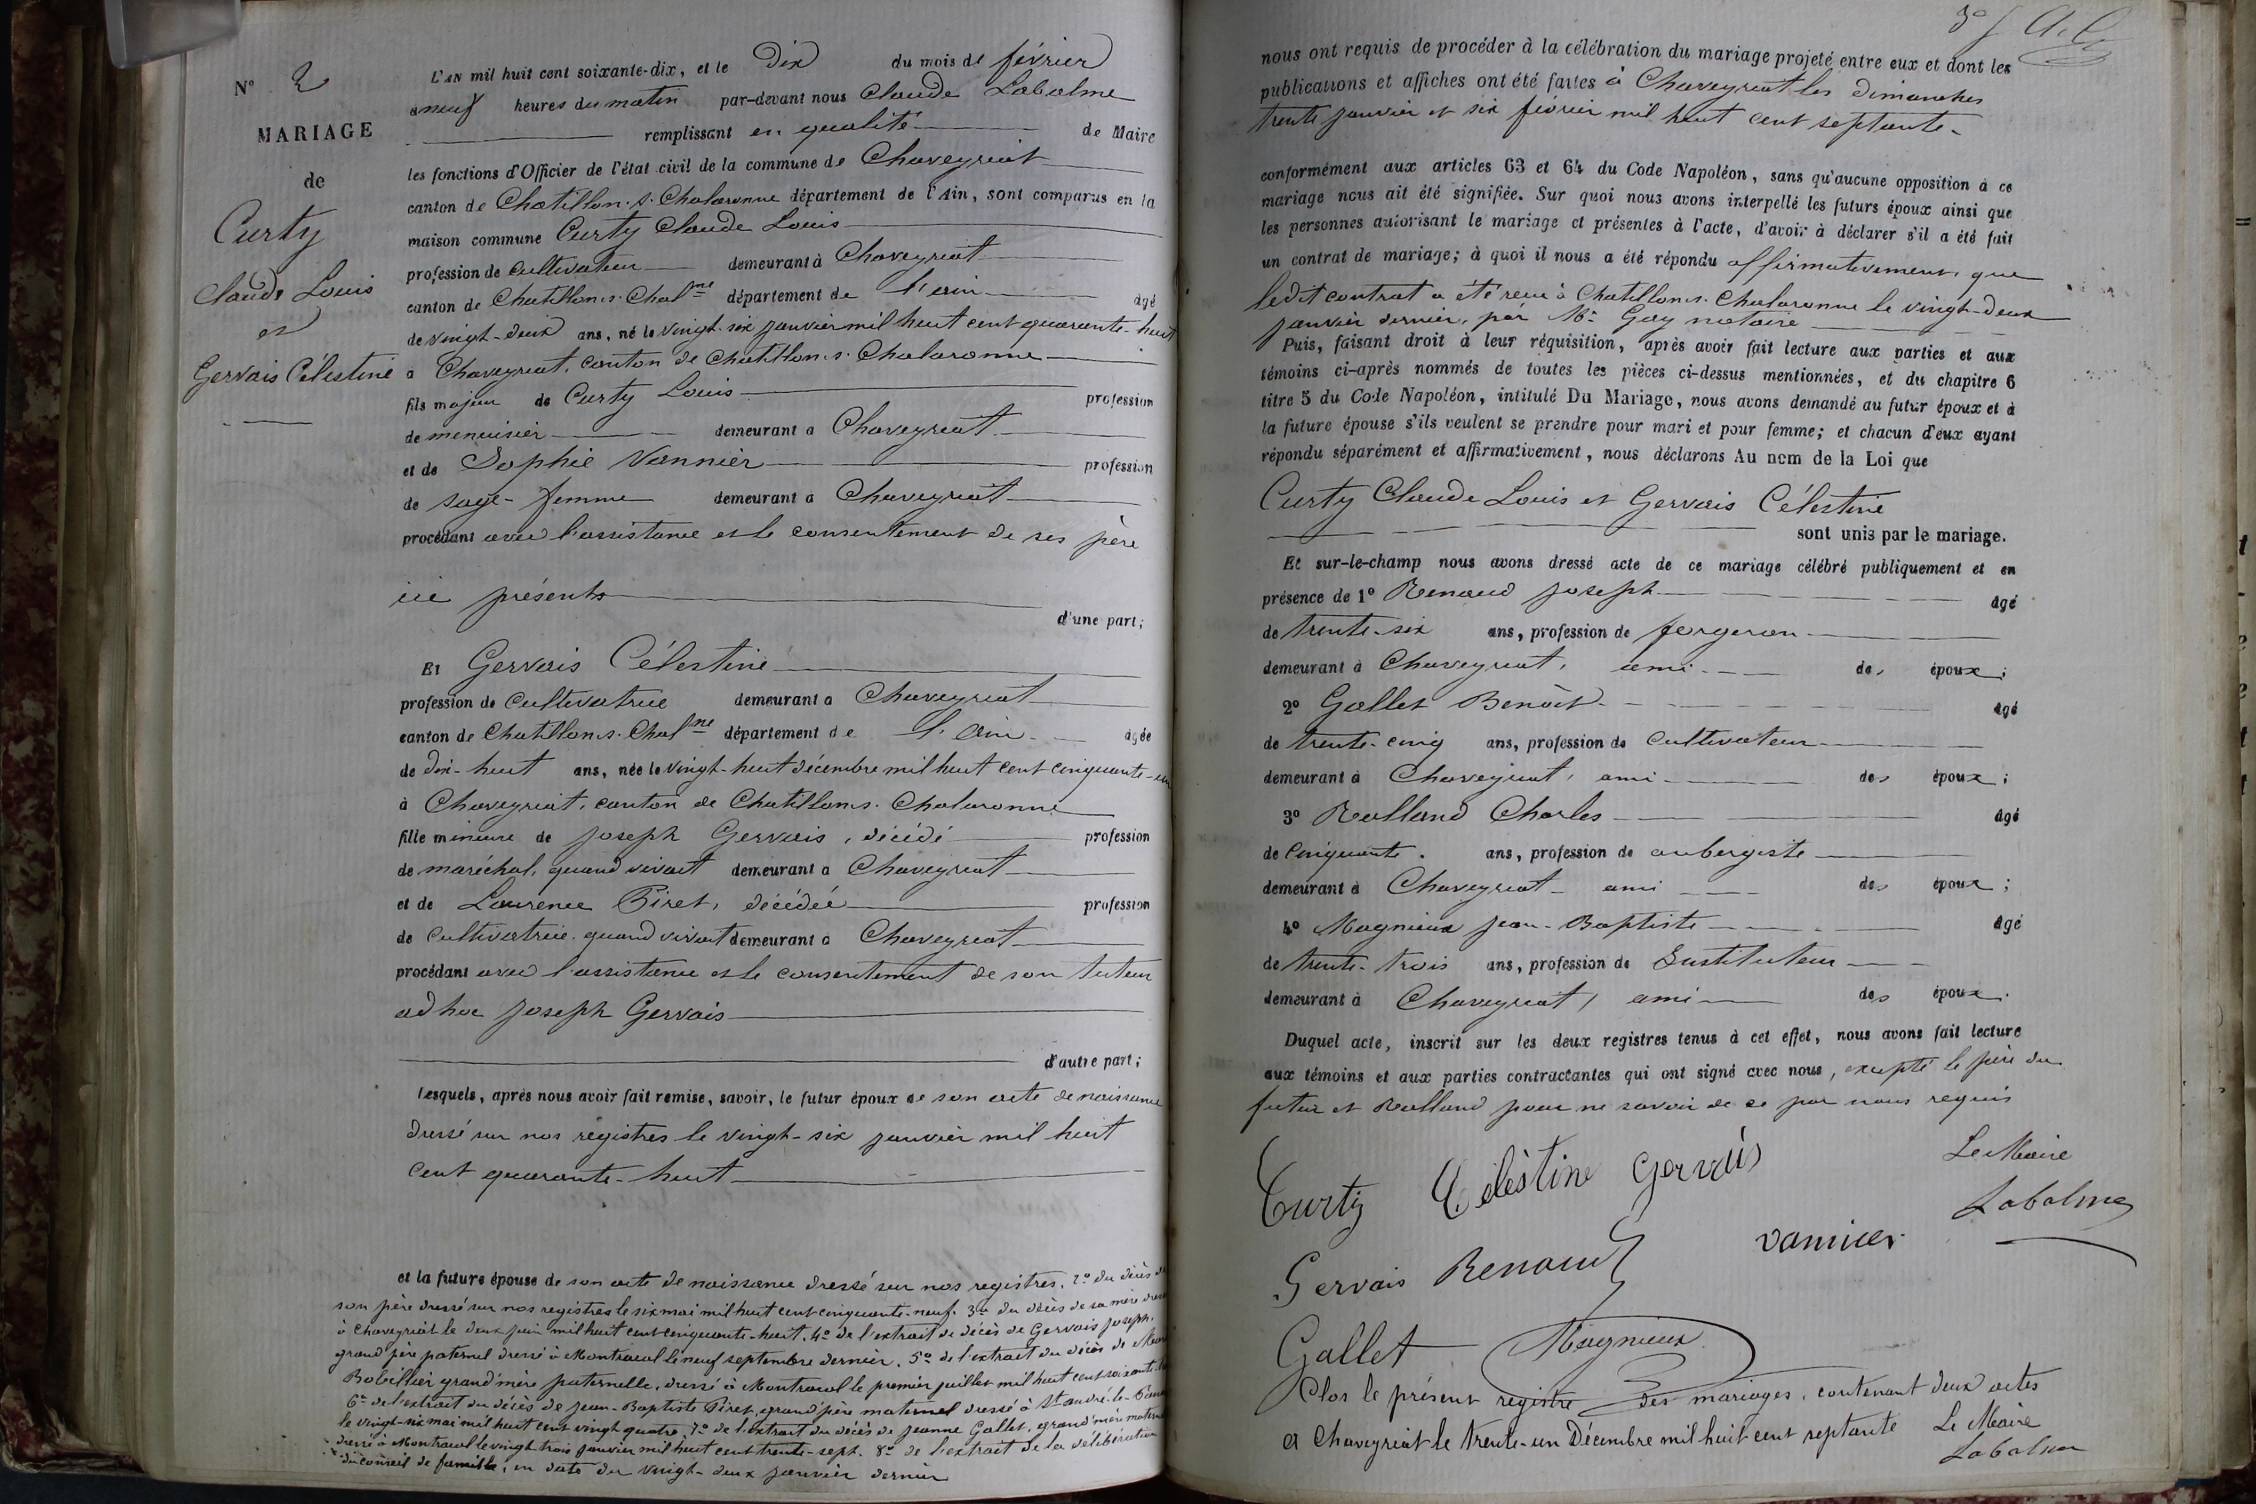 N° 2
MARIAGE
de
Curty
Claude Louis
et
Gervais Célestine
L'AN mil huit cent soixante-dix, et le dix du mois de février
à neuf heures du matin par-devant nous Claude Labalme
remplissant en qualité de Maire
les fonctions d'Officier de l'état civil de la commune de Chaveyriat
canton de Chatillon-s-Chalaronne département de l'Ain, sont comparus en la
maison commune Curty Claude Louis
profession de cultivateur demeurant à Chaveyriat
canton de Chatillon-s-Chalne département de l'ain âgé
de vingt-deux ans, né le vingt-six janvier mil huit cent quarante-huit
à Chaveyriat, canton de Chatillon-s-Chalaronne
fils majeur de Curty Louis profession
de menuisier demeurant à Chaveyriat
et de Sophie Vannier profession
de sage-femme demeurant à Chaveyriat
procédant avec l'assistance et le consentement de ses père
ici présents
d'une part;
Et Gervais Célestine
profession de cultivatrice demeurant à Chaveyriat
canton de Chatillon-s-Chalne département de l'ain âgée
de dix-huit ans, née le vingt-huit décembre mil huit cent cinquante-un
à Chaveyriat, canton de Chatillon-s-Chalaronne
fille mineure de Joseph Gervais, décédé profession
de maréchal, quand vivait demeurant à Chaveyriat
et de Laurence Piret, décédée profession
de cultivatrice quand vivait demeurant à Chaveyriat
procédant avec l'assistance et le consentement de son tuteur
ad hoc Joseph Gervais
d'autre part;
Lesquels, après nous avoir fait remise, savoir, le futur époux de son acte de naissance
dressé sur nos registres le vingt-six janvier mil huit
cent quarante-huit
et la future épouse de son acte de naissance dressé sur nos registres, 2° du décès de
son père dressé sur nos registres le six mai mil huit cent cinquante-neuf. 3° du décès de sa mère dressé
à Chaveyriat le deux juin mil huit cent cinquante-huit. 4° de l'extrait de décès de Gervais Joseph,
grand père paternel dressé à Montracol le neuf septembre dernier. 5° de l'extrait du décès de
Bobillier grand'mère paternelle, dressé à Montracol le premier juillet mil huit cent soixante
6° de l'extrait du décès de Jean-Baptiste Piret, grand'père maternel dressé à St André-le-
le vingt-six mai mil huit cent vingt quatre. 7° de l'extrait du décès de Jeanne Gallet, grand'mère maternelle
dressé à Montracol le vingt trois janvier mil huit cent trente-sept. 8° de l'extrait de la délibération
du conseil de famille, en date du vingt-deux janvier dernier
nous ont requis de procéder à la célébration du mariage projeté entre eux et dont les
publications et affiches ont été faites à Chaveyriat les dimanches
trente janvier et six février mil huit cent septante-
conformément aux articles 63 et 64 du Code Napoléon, sans qu'aucune opposition à ce
mariage nous ait été signifiée. Sur quoi nous avons interpellé les futurs époux ainsi que
les personnes autorisant le mariage et présentes à l'acte, d'avoir à déclarer s'il a été fait
un contrat de mariage; à quoi il nous a été répondu affirmativement, que
ledit contrat a été reçu à Chatillon-s-Chalaronne le vingt-deux
janvier dernier, par Me Gay notaire
Puis, faisant droit à leur réquisition, après avoir fait lecture aux parties et aux
témoins ci-après nommés de toutes les pièces ci-dessus mentionnées, et du chapitre 6
titre 5 du Code Napoléon, intitulé Du Mariage, nous avons demandé au futur époux et à
la future épouse s'ils veulent se prendre pour mari et pour femme; et chacun d'eux ayant
répondu séparément et affirmativement, nous déclarons Au nom de la Loi que
Curty Claude Louis et Gervais Célestine
sont unis par le mariage.
Et sur-le-champ nous avons dressé acte de ce mariage célébré publiquement et en
présence de 1° Renaud Joseph âgé
de trente-six ans, profession de forgeron
demeurant à Chaveyriat, ami des époux;
2° Gallet Benoît âgé
de trente-cinq ans, profession de cultivateur
demeurant à Chaveyriat, ami des époux;
3° Rolland Charles âgé
de cinquante ans, profession de aubergiste
demeurant à Chaveyriat ami des époux;
4° Magnieux Jean-Baptiste âgé
de trente-trois ans, profession de Instituteur
demeurant à Chaveyriat, ami des époux.
Duquel acte, inscrit sur les deux registres tenus à cet effet, nous avons fait lecture
aux témoins et aux parties contractantes qui ont signé avec nous, excepté le père du
futur et Rolland pour ne savoir de ce par nous requis
Curty Célèstine Gervais Le Maire
Labalme
Gervais Renaud vannier
Gallet Magnieux
Clos le présent registre des mariages, contenant deux actes
à Chaveyriat le trente-un Décembre mil huit cent septante Le Maire
Labalme